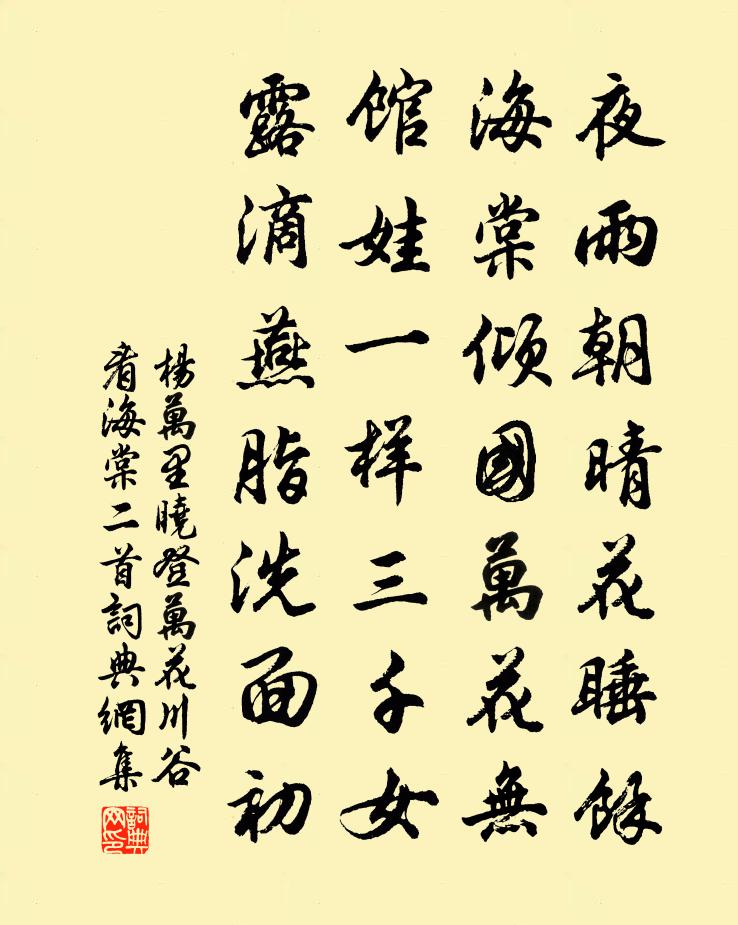 夜雨朝晴花睡餘
海棠傾國萬花無
館娃一样三千女
露滴燕脂洗面初
楊萬里曉登萬花川谷
看海棠二首詞典網集
詞典
网印